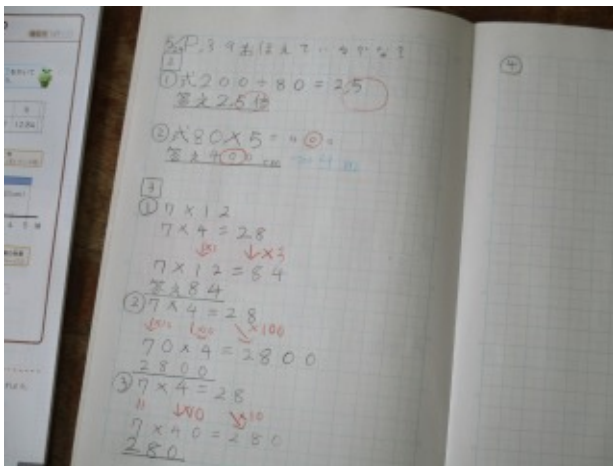 5年P.39おぼえているかな?
2
①式200÷80=2.5
答え2.5倍
②式80×5=400
答え400cm
3
①7×12
7×4=28
×3
7×12=84
答え84
②7×4=28
×10 ×100
70×4=2800
2800
③7×4=28
×10 ×10
7×40=280
280
④